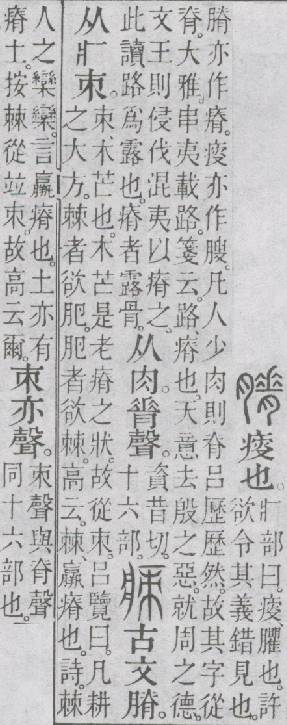 膌瘦也。
疒部曰。瘦、臞也。許
欲令其義錯見也。
膌亦作瘠。瘦亦作膄。凡人少肉則脊呂歷歷然。故其字從
脊。大雅。串夷載路。箋云。路、瘠也。天意去殷之惡。就周之德。
文王則侵伐混夷以瘠之。
此讀路爲露也。瘠者露骨。
从肉。脊聲。
資昔切。
十六部。
㾊古文膌。
从疒朿。
朿、木芒也。木芒是老瘠之狀。故從朿。呂覽曰。凡耕
之大方。棘者欲肥。肥者欲棘。高云。棘、羸瘠也。詩。棘
人之欒欒。言羸瘠也。土亦有
瘠土。按棘從竝朿。故高云爾。
朿亦聲。
朿聲與脊聲
同十六部也。